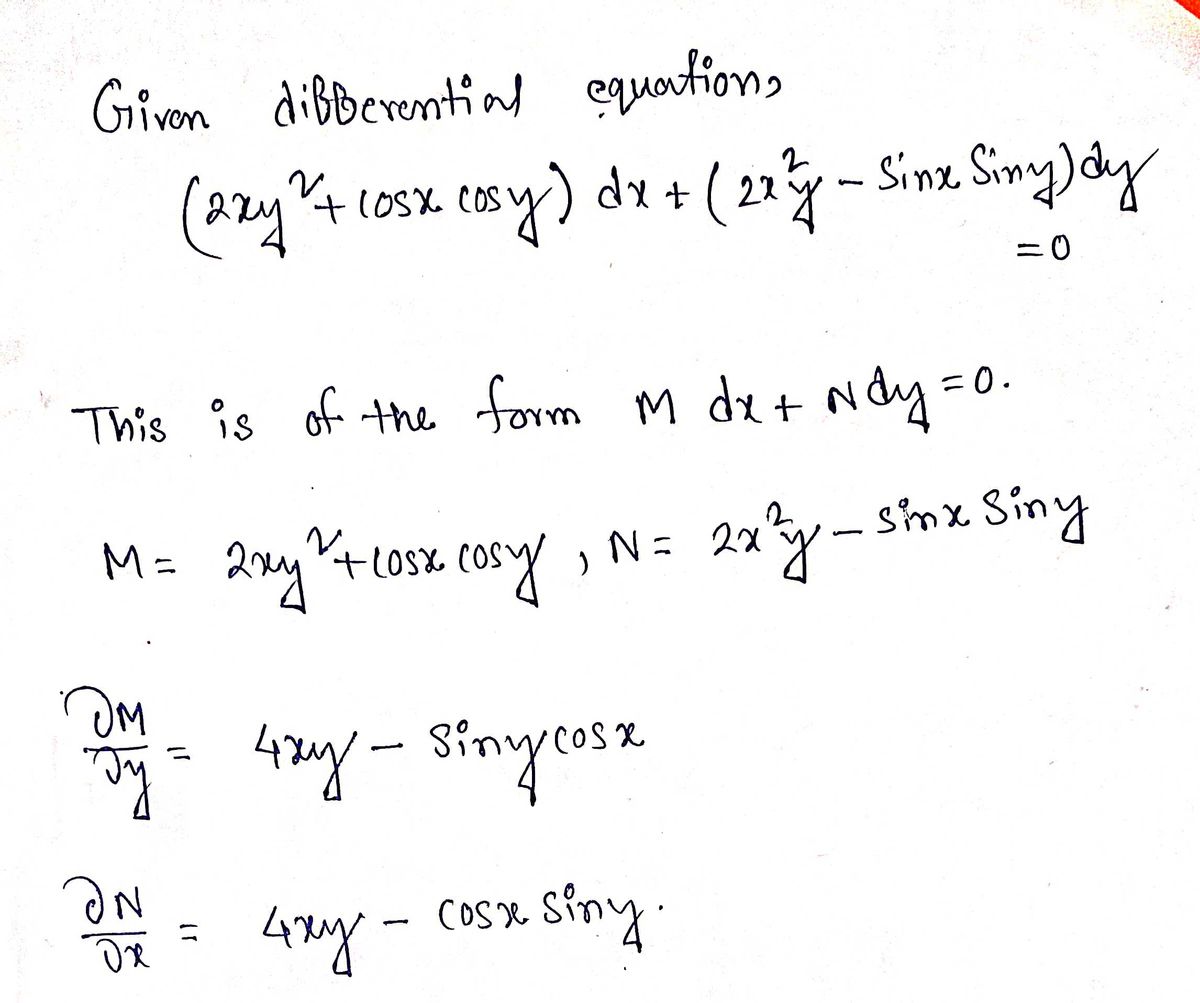 Given differential equation,
(2xy²+ cosx cosy) dx + (2x²y - Sinx Siny) dy
=0
This is of the form M dx + N dy =0.
M= 2xy²+cosx cosy , N= 2x²y - sinx Siny
∂M/∂y = 4xy - Siny cosx
∂N/∂x = 4xy - cosx Siny.